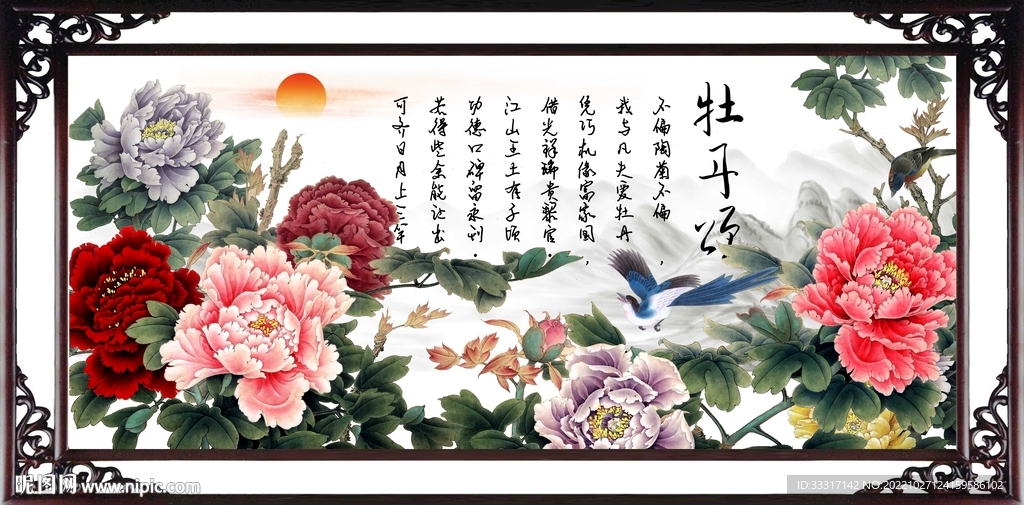 牡丹颂
不偏陶菊不偏,
我与凡夫爱牡丹
凭巧机缘富家国,
借光祥瑞贵黎官.
江山王土有子颂
功德口碑留永刊.
若得些余能让出
可齐日月上三年
昵图网 www.nipic.com
ID:33317142 NO.20221027124159586102